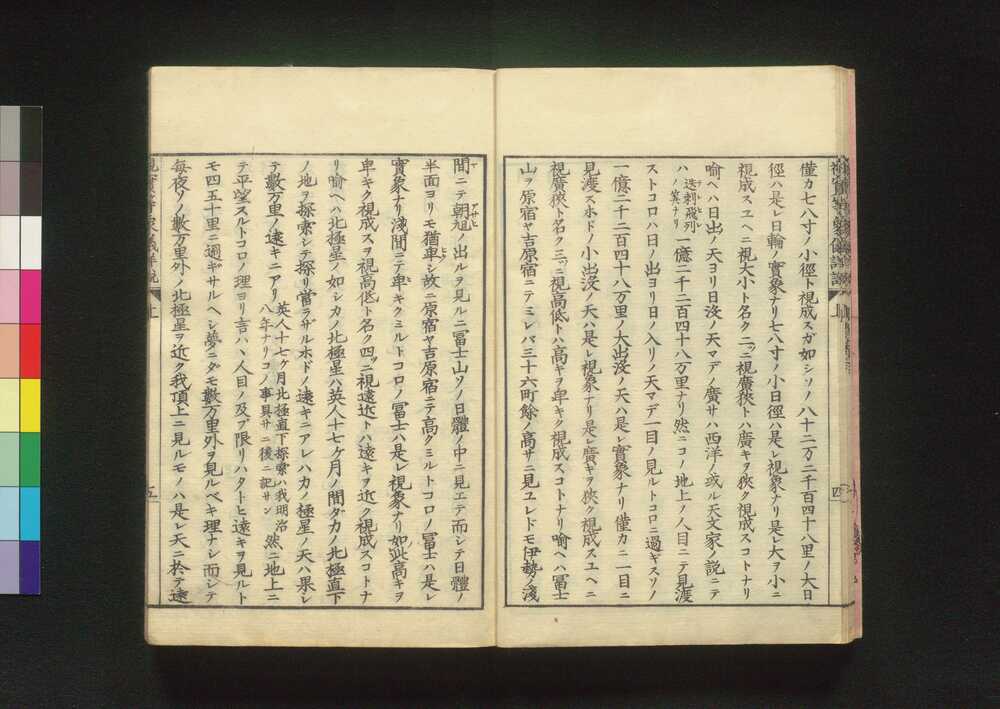 僅カ七八寸ノ小徑ト視成スガ如シソノ八十二万二千百四十八里ノ大日
徑ハ是レ日輪ノ實象ナリ七八寸ノ小日徑ハ是レ視象ナリ是レ大ヲ小ニ
視成スユヘニ視大小ト名ク二ッニ視廣狹トハ廣キヲ狹ク視成スコトナリ
喻ヘハ日出ノ天ヨリ日沒ノ天マデノ廣サハ西洋ノ或ル天文家ノ說ニテ
ハ
迭刺飛列
ノ筭ナリ
一億二千二百四十八万里ナリ然ニコノ地上ノ人目ニテ見渡
ストコロハ日ノ出ヨリ日ノ入リノ天マデ一目ノ見ルトコロニ過ギスソノ
一億二千二百四十八万里ノ大出沒ノ天ハ是レ實象ナリ僅カニ一目ニ
見渡スホドノ小出沒ノ天ハ是レ視象ナリ是レ廣キヲ狹ク視成スユヘニ
視廣狹ト名ク三ッニ視高低トハ高キヲ卑キク視成スコトナリ喻ヘハ冨士
山ヲ原宿ヤ吉原宿ニテミレバ三十六町餘ノ高サニ見ユレドモ伊勢ノ淺
上
四
間ニテ朝旭ノ出ルヲ見ルニ冨士山ソノ日體ノ中ニ見エテ而シテ日體ノ
半面ヨリモ猶卑シ故ニ原宿ヤ吉原宿ニテ高クミルトコロノ冨士ハ是レ
實象ナリ淺間ニテ卑キクミルトコロノ冨士ハ是レ視象ナリ如此高キヲ
卑キク視成スヲ視高低ト名ク四ッニ視遠近トハ遠キヲ近ク視成スコトナ
リ喻ヘハ北極星ノ如シカノ北極星ハ英人十七ケ月ノ間ダカノ北極直下
ノ地ヲ探索シテ探リ當ラザルホドノ遠キニアレハカノ極星ノ天ハ果レ
テ數万里ノ遠キニアリ
英人十七ケ月北極直下探索ハ我明治
八年ナリコノ事具サニ後ニ記サン
然ニ地上ニ
テ平望スルトコロノ理ヨリ言ハヽ人目ノ及ブ限リハタトヒ遠キヲ見ルト
モ四五十里ニ過ギサルヘシ夢ニダモ數万里外ヲ見ルベキ理ナシ而シテ
每夜ソノ數万里外ノ北極星ヲ近ク我頂上ニ見ルモノハ是レ天ニ於テ遠
上
五